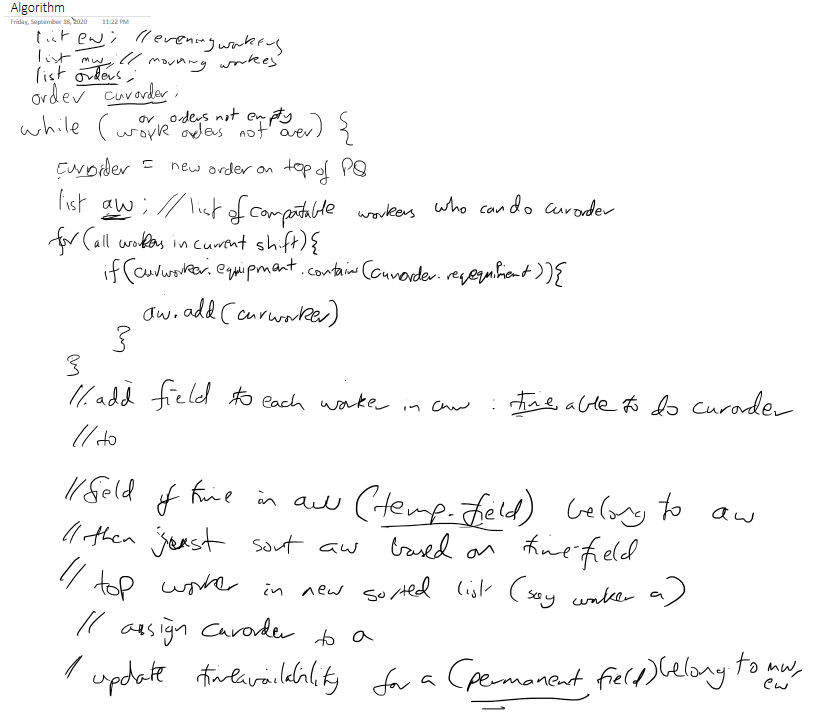 Algorithm
Friday, September 18, 2020 11:22 PM
list ew; // evening workers
list mw, // morning workes
list orders;
order curorder;
or orders not empty
while ( work orders not over) {
curorder = new order on top of PQ
list aw; // list of compatable workers who can do curorder
for (all workers in current shift) {
if (curworker.equipment.contain(curorder.reqequipment)) {
aw.add(curworker)
}
}
//.add field to each worker in aw : time able to do curorder
// to
// field of time in aw (temp. field) belong to aw
// then just sort aw based on time-field
// top worker in new sorted list (say worker a)
// assign curorder to a
/ update timeavailability for a (permanent field) belong to mw, ew